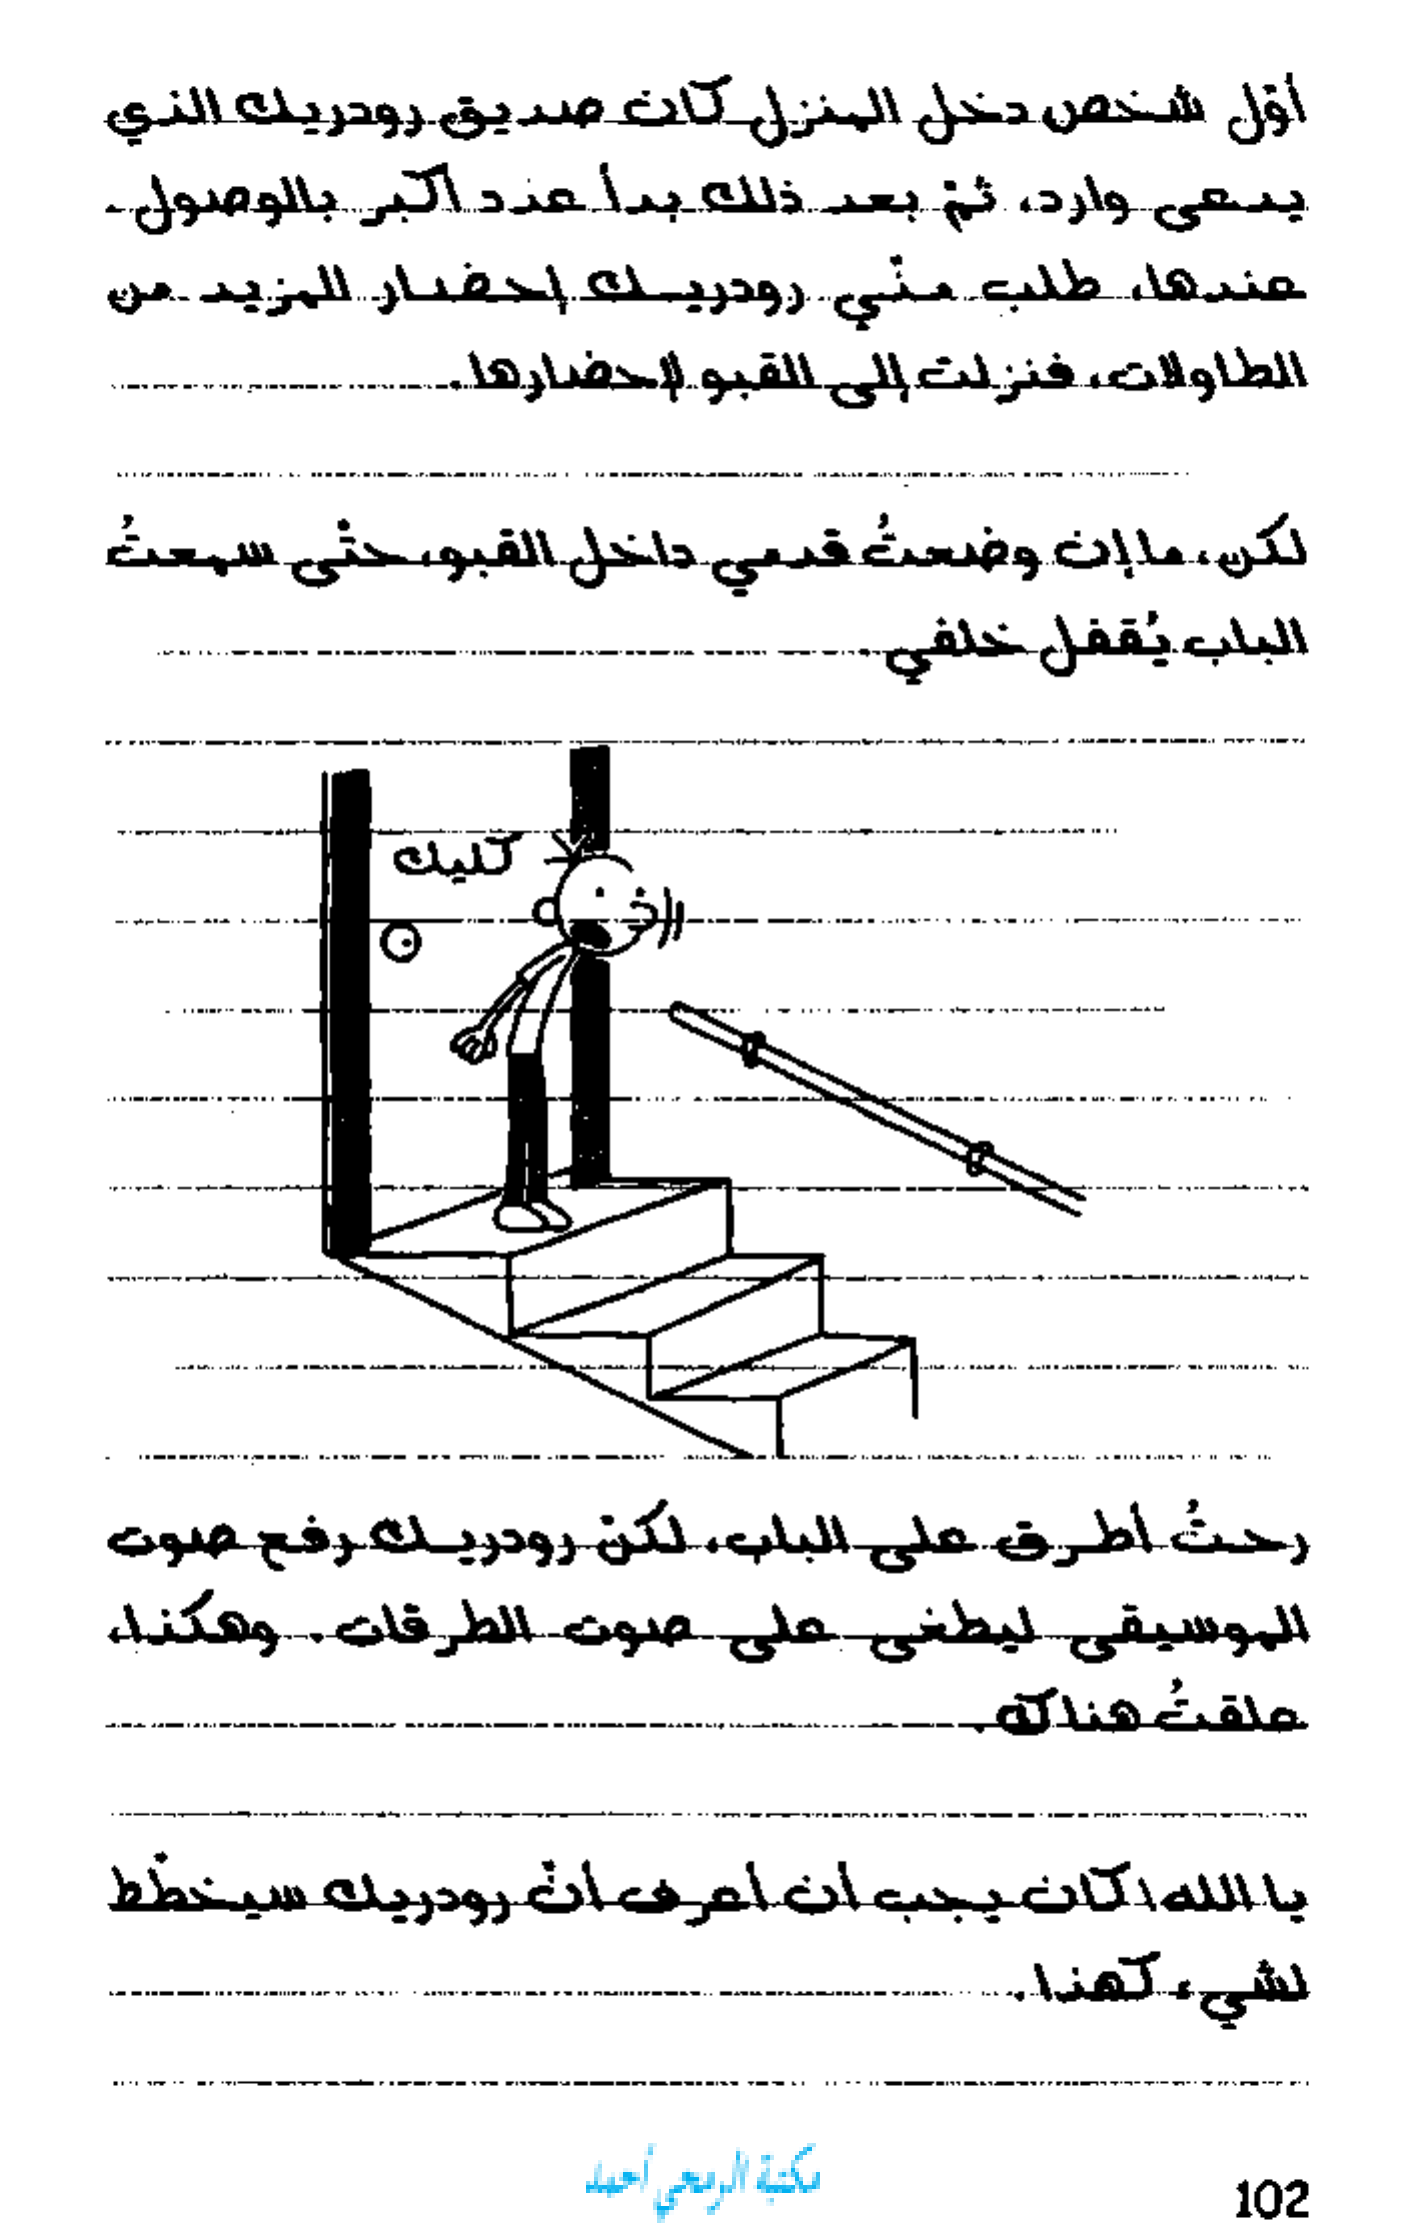 أوّل شخص دخل المنزل كان صديق رودريك الذي
يدعى وارد، ثمّ بعد ذلك بدأ عدد أكبر بالوصول.
عندها، طلب منّي رودريك إحضار المزيد من
الطاولات، فنزلت إلى القبو لإحضارها.
لكن، ما إن وضعتُ قدمي داخل القبو، حتّى سمعتُ
الباب يُقفل خلفي.
كليك
رحتُ أطرق على الباب، لكنّ رودريك رفع صوت
الموسيقى ليطغى على صوت الطرقات. وهكذا،
علقتُ هناك.
يا الله! كان يجب أن أعرف أنّ رودريك سيخطّط
لشيء كهذا.
مكتبة الرمحي أحمد
102